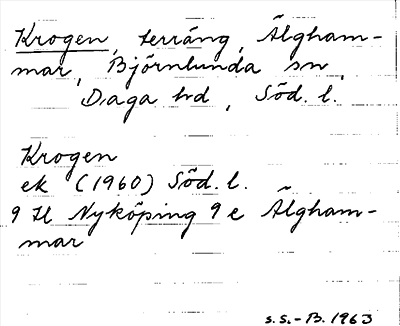 Krogen, terräng, Älgham-
mar, Björnlunda sn,
Daga hd, Söd. l.
Krogen
ek (1960) Söd. l.
9 H Nyköping 9 e Älgham-
mar
S.S.-B. 1963